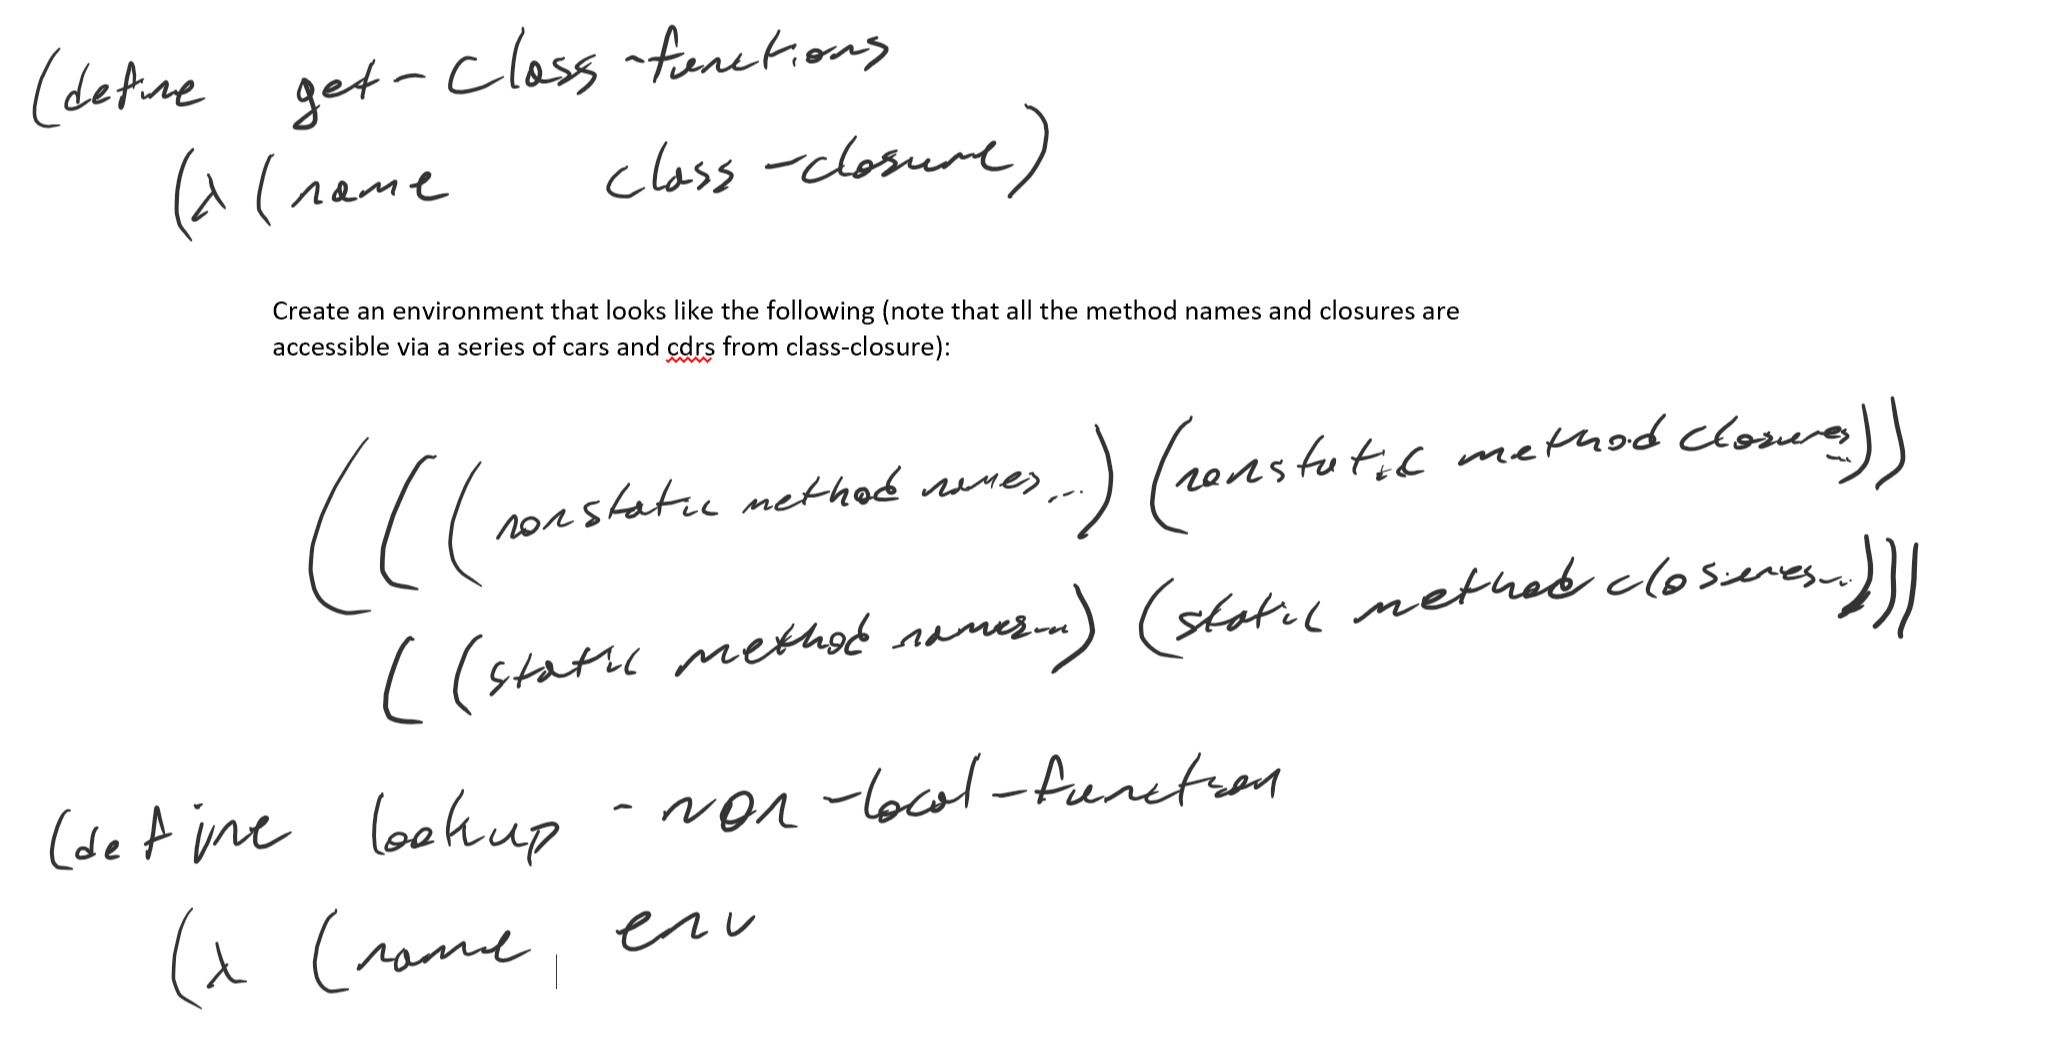 (define get-class-functions
(λ (name class-closure)
Create an environment that looks like the following (note that all the method names and closures are
accessible via a series of cars and cdrs from class-closure):
(((nonstatic method names...) (nonstatic method closures...))
((static method names...) (static method closures...)))
(define lookup-non-local-function
(λ (name, env